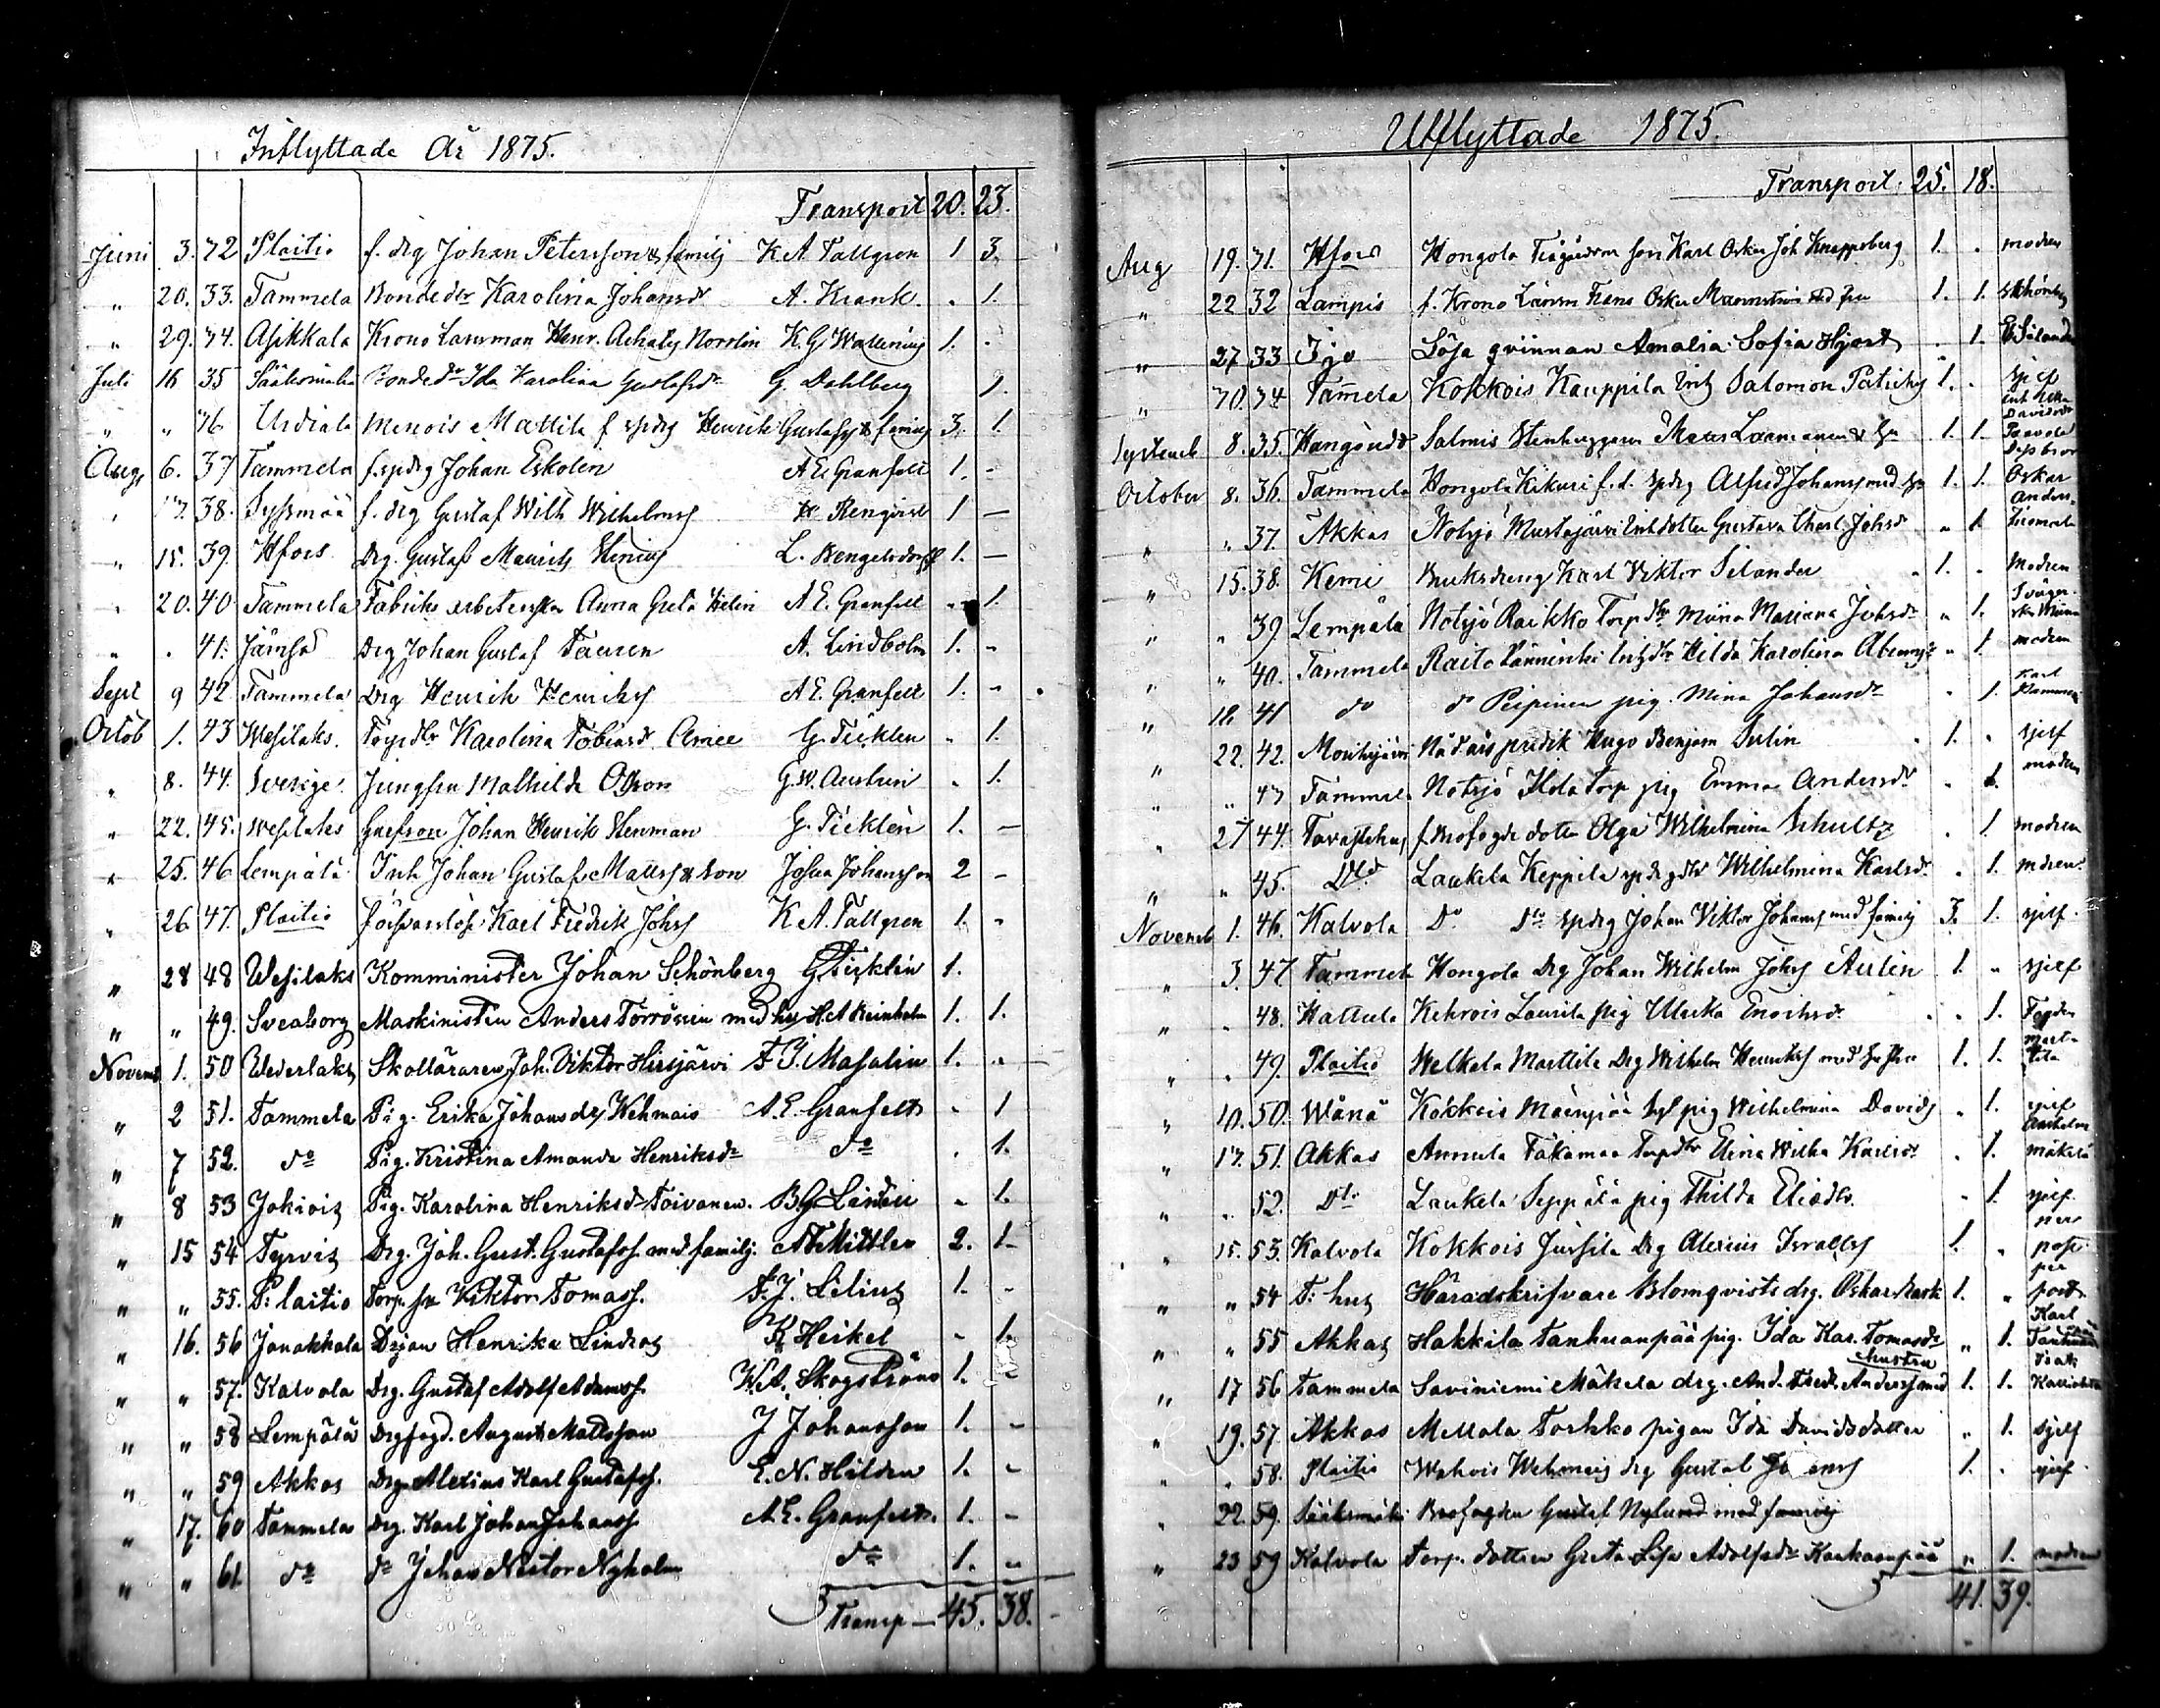 Inflyttade År 1875.
Transport 20. 23.
Juni 3. 32 Plaitio f. drg Johan Petersson & familj K A Tallgren 1 3.
„ 20. 33. Tammela Bondedr Karolina Johansdr A. Krank . 1.
„ 29. 34. Asikkala Krono Länsman Henr. Achates Norrlin K. G. Wallenius 1. .
Juli 16 35 Sääksmäki Bondedr Ida Karolina Gustafsdr G. Dahlberg 1.
„ „ 36 Urdiala Menois Mattila f spdrg Henrik Gustafss & familj 3. 1.
Aug 6. 37 Tammela f. spdrg Johan Eskolin A E. Granfelt 1. -
„ 13. 38. Syssmää f. drg Gustaf Wilh Wilhelmss H Renqvist 1 —
„ 15. 39. Hfors Drg. Gustaf Maurits Stenius L. Bengelsdorff 1. —
„ 20. 40 Tammela Fabriks arbeterskan Anna Greta Helin A E. Granfelt „ 1.
„ . 41. Jämsä Drg Johan Gustaf Tauren A. Lindholm 1. -
Sept 9 42 Tammela Drg Henrik Henrikss A E. Granfelt 1. -
Octob 1. 43 Wesilaks. Torpdr Karolina Tobiasdr G. Ticklen . 1.
„ 8. 44. Sverige Jungfru Mathilda Olsson G. W. . 1.
„ 22. 45. Wesilaks Johan Henrik Stenman G. Ticklén 1. —
„ 25. 46 Lempälä Inh Johan Gustaf Matss & son Josua Johansson 2 -
„ 26 47. Plaitio Karl Fredrik Johss K. A. Tallgren 1. -
„ 28 48 Wesilaks Komminister Johan Schönberg G Ticklén 1.
„ „ 49. Sveaborg Maskinisten Anders Törrönen med hu H. A Reinholm 1. 1.
Novemb 1. 50 Wederlaks Skolläraren Joh. Viktor Hirsjärvi F. J. Masalin 1. „
„ 2 51. Tammela Pig. Erika Johansdr Wehmais A. E. Granfelt - 1
„ 7 52. do Pig. Kristina Amanda Henriksdr do . 1.
„ 8 53 Jokiois Pig. Karolina Henriksdr Toivonen. B G Lindén - 1.
„ 15 54 Tyrvis Drg. Joh. Gust. Gustafss. med familj. A. F. Mittler 2. 1-
„ „ 55. P: laitio Torp. sn Viktor Tomass. F. J. Lilius 1. -
„ 16. 56 Janakkala Drjan Henrika Lindros K Heikel - 1.
„ „ 57. Kalvola Drg. Gustaf Adolf Adamss. W. A. Skogström 1. -
„ „ 58 Lempälä Drgfogd. August Mattsson J Johansson 1. -
„ „ 59 Akkas Drg. Alexius Karl Gustafss. E. N. Hildén 1. -
„ 17. 60 Tammela Drg. Karl Johan Johanss. A E. Granfelt. 1. -
„ „ 61. do do Johan Nestor Nyholm do 1. „
Transp — 45. 38.
Utflyttade 1875.
Transport. 25. 18.
Aug 19. 31. Hfors Hongola son Karl Oskar Joh Knappsberg 1. . modren
„ 22 32 Lampis f. Krono Länsm Frans Oskar med fru 1. 1. Schönberg
„ 27 33 Ijo Lösa qvinnan Amalia Sofia Hjort . 1. Silander
„ 30. 34 Tammela Kokkois Kauppila Inh Salomon 1. .
Septemb 8. 35. Hangöudd Salmis Stenhuggaren Maas & hu 1. 1.
October 8. 36. Tammela Hongola Kikuri f. d. spdrg Alfred Johanss med hu 1. 1. Oskar Anders.
„ „ 37. Akkas Notsjö Mustajärvi Inhdotter Gustava Charl. Johsdr „ 1.
„ 15. 38. Kemi Bruksdreng Karl Viktor Silander 1. . Modren
„ „ 39 Lempälä Notsjö Raikko Torpdr Mina Mariana Johsdr „ 1. Sväger
„ „ 40. Tammela Raito Inhdr Hilda Karolina „ 1. modren
„ 18. 41 do do Peipinen pig. Mina Johansdr . 1. Karl
„ 22. 42. Nådårspredik Hugo Benjam 1. . sjelf
„ „ 43 Tammel. Notsjö Torp pig Emma Andersdr . 1. modren
„ 27 44. Tavastehus f. Brofogde dotter Olga Wilhelmina Schultz . 1. modren
„ „ 45. Dto Laukela Keppilä spdrgdtr Wilhelmina Karlsdr . 1. mdren
Novemb 1. 46. Kalvola Do Do spdrg Johan Viktor Johanss med familj 3. 1. sjelf.
„ 3. 47 Tammela Hongola Drg Johan Wilhelm Johss Aulin 1. „ sjelf
„ . 48. Hattula Kehrois Laurila pig Ulrika Enochsdr . . 1.
„ . 49. Plaitio Welkala Marttila Drg Wilhelm Henrikss med hustru 1. 1.
„ 10. 50. Wånå Kokkois pig Wilhelmina Davids „ 1. sjelf
„ 13. 51. Akkas Annula Takamaa Torpdtr Elina Wilha Karlsdr . 1. Mäkelä
„ „ 52. Dto Laukela Seppälä pig Thilda Eliædtr. - 1. sjelf
„ 15. 53. Kalvola Kokkois Jussila Drg Alexius Israelss 1. „ per post.
„ „ 54 T: hus Häradskrifvare Blomqvists drg. Oskar Rask 1. „ per post.
„ „ 55 Akkas Hakkila Tanhuanpää pig. Ida Kar. Tomasdr „ 1. Karl
„ 17 56 Tammela Saviniemi Mäkela drg. And. Fred. Anderss med hustru 1. 1. Isak
„ 19. 57 Akkas Mellola Torkko pigan Ida Davidsdotter „ 1. Sjelf
„ . 58. Plaitio Wahois Wehmais drg Gustaf 1. . sjelf
„ 22. 59. Sääksmäki Brofogden Gustaf Nylund med familj
„ 23 59 Kalvola Torp. dottren Greta Lisa Adolfsdr Kankaanpää „ 1. modren
41. 39.